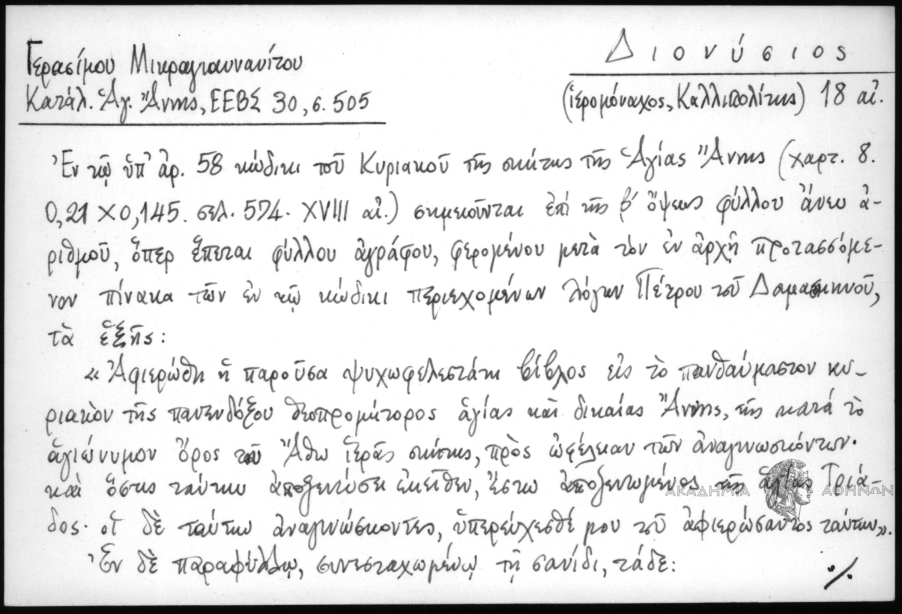 Γερασίμου Μικραγιαννανίτου
Διονύσιος
Κατάλ. Ἁγ. Ἄννης, ΕΕΒΣ 30, σ. 505
(ἱερομόναχος, Καλλιπολίτης) 18 αἰ.
Ἐν τῷ ὑπ' ἀρ. 58 κώδικι τοῦ Κυριακοῦ τῆς σκήτης τῆς Ἁγίας Ἄννης (χαρτ. 8.
0,21 × 0,145. σελ. 574. XVIII αἰ.) σημειοῦνται ἐπὶ τῆς β' ὄψεως φύλλου ἄνευ ἀ-
ριθμοῦ, ὅπερ ἕπεται φύλλου ἀγράφου, φερομένου μετὰ τὸν ἐν ἀρχῇ προτασσόμε-
νον πίνακα τῶν ἐν τῷ κώδικι περιεχομένων λόγων Πέτρου τοῦ Δαμασκηνοῦ,
τὰ ἑξῆς:
« Ἀφιερώθη ἡ παροῦσα ψυχωφελεστάτη βίβλος εἰς τὸ πανθαύμαστον κυ-
ριακὸν τῆς πανενδόξου θεοπρομήτορος ἁγίας καὶ δικαίας Ἄννης, τῆς κατὰ τὸ
ἁγιώνυμον Ὄρος τοῦ Ἄθω ἱερᾶς σκήτης, πρὸς ὠφέλειαν τῶν ἀναγινωσκόντων·
καὶ ὅστις ταύτην ἀποξενώσει ἐκεῖθεν, ἔστω ἀποξενωμένος τῆς ἁγίας Τριά-
δος· οἱ δὲ ταύτην ἀναγινώσκοντες, ὑπερεύχεσθέ μου τοῦ ἀφιερώσαντος ταύτην».
Ἐν δὲ παραφύλλῳ, συνεσταχωμένῳ τῇ σανίδι, τάδε:
./.
ΑΚΑΔΗΜΙΑ ΑΘΗΝΩΝ